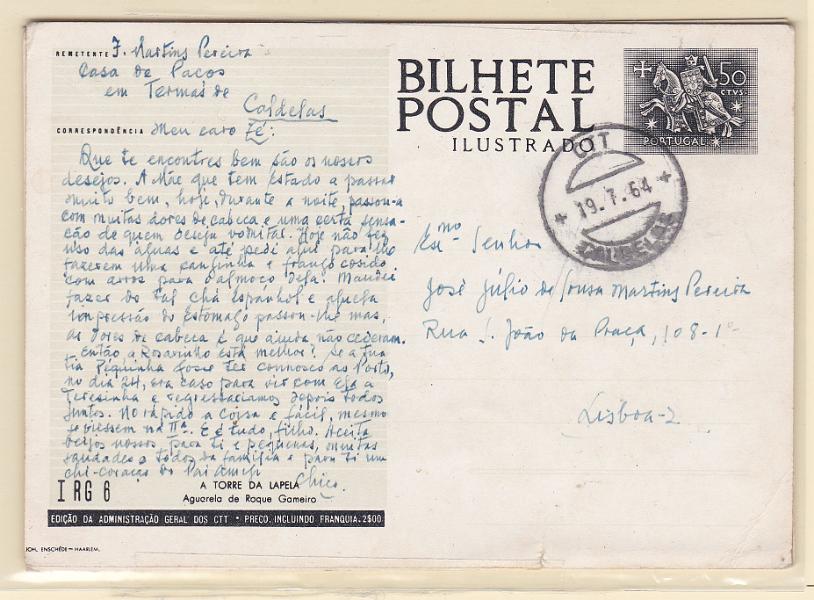 REMETENTE F. Martins Pereira
Casa de Paços
em Termas de
Caldelas
CORRESPONDÊNCIA Meu caro Zé:
Que te encontres bem são os nossos
desejos. A Mãe que tem estado a passar
muito bem, hoje, durante a noite, passou-a
com muitas dores de cabeça e uma certa sensa-
ção de quem deseja vomitar. Hoje não fez
uso das águas e até pedi aqui para lhe
fazerem uma canjinha e frango cosido
com arroz para o almoço dela. Mandei
fazer do tal chá Espanhol e aquela
impressão do Estomago passou-lhe mas,
as dores de cabeça é que ainda não cederam.
Então a Rosarinho está melhor? Se a tua
tia Piquinha fosse ter connosco ao Porto,
no dia 24, era caso para vir com ela a
Teresinha e regressariamos depois todos
juntos. No rápido a coisa é fácil, mesmo
se viessem na IIª. E é tudo, filho. Aceita
beijos nossos, para ti e pequenas, muitas
saudades a todos da familia e para ti um
chi-coração do Pai amigo
Chico.
I RG 6
A TORRE DA LAPELA
Aguarela de Roque Gameiro
EDIÇÃO DA ADMINISTRAÇÃO GERAL DOS CTT • PREÇO, INCLUINDO FRANQUIA, 2$00
JOH. ENSCHÉDE — HAARLEM.
BILHETE
POSTAL
ILUSTRADO
50
CTVS.
PORTUGAL
CTT
19.7.64
CALDELAS
Exmo. Senhor
José Júlio de Sousa Martins Pereira
Rua S. João da Praça, 108-1º
Lisboa-2